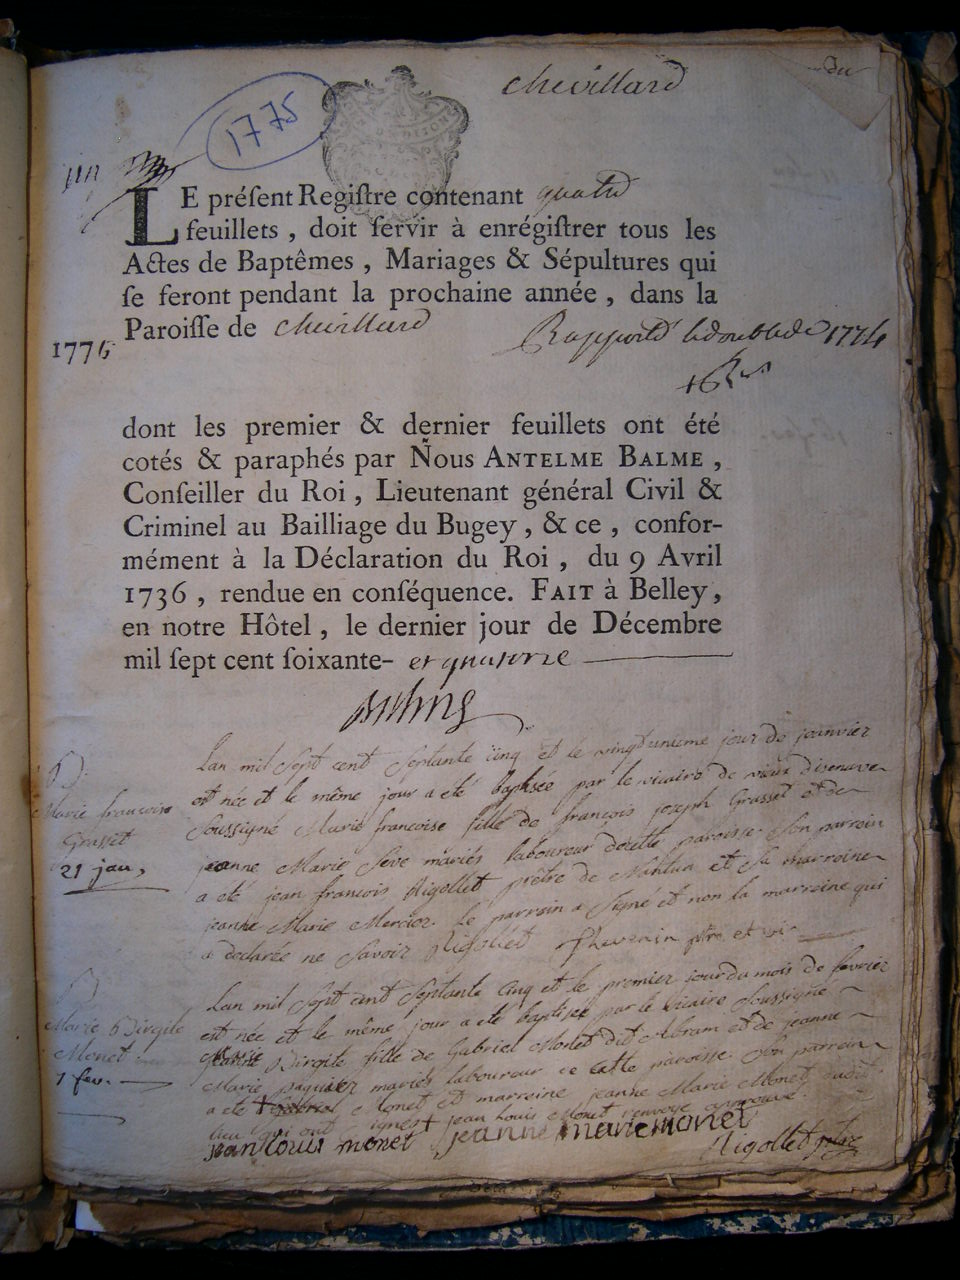 chevillard
1775
LE préſent Regiſtre contenant quatre
feuillets, doit ſervir à enrégiſtrer tous les
Actes de Baptêmes, Mariages & Sépultures qui
ſe feront pendant la prochaine année, dans la
Paroiſſe de chevillard
Rapporté le double de 1774
1775
dont les premier & dernier feuillets ont été
cotés & paraphés par Nous ANTELME BALME,
Conſeiller du Roi, Lieutenant général Civil &
Criminel au Bailliage du Bugey, & ce, confor-
mément à la Déclaration du Roi, du 9 Avril
1736, rendue en conſéquence. FAIT à Belley,
en notre Hôtel, le dernier jour de Décembre
mil ſept cent ſoixante- et quatorze
Lan mil Sept cent Septante cinq et le vingtunieme jour de janvier
est née et le même jour a eté baptisée par le vicaire de vieux
B.
Marie francoise
Grasset
21 jan,
Soussigné Marie francoise fille de francois joseph Grasset et de
jeanne Marie Seve mariés laboureur paroisse. Son parrein
a eté jean francois Rigollet prêtre de Nantua et Sa marreine
jeanne Marie Mercier. Le parrein a Signé et non la marreine qui
a declarée ne Savoir Rigollet Thevenin ptre et vic
Lan mil Sept cent Septante cinq et le premier jour du mois de fevrier
est née et le même jour a eté baptisée par le vicaire Soussigné
B
Marie Birgite
Monet
1 fev.
Marie Birgite fille de Gabriel Monet dit Abram et de jeanne
Marie paquier mariés laboureur de cette paroisse. Son parrein
a eté Monet et marreine jeanne Marie Monet
qui ont signes + jean Louis Monet renvoye approuvé
jean louis monet jeanne marie monet
Rigollet ptre